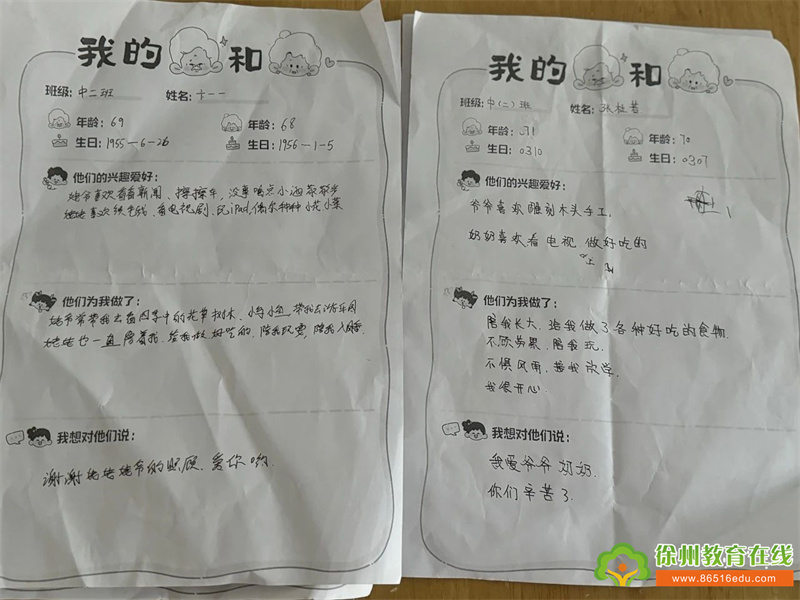 我的 和
班级: 中二班 姓名: 卞一一
年龄: 69 年龄: 68
生日: 1955-6-26 生日: 1956-1-5
他们的兴趣爱好:
姥爷喜欢看看新闻、擦擦车, 没事喝点小酒 散散步
姥姥喜欢 看电视剧、玩iPad, 偶尔种种小花小菜
他们为我做了:
姥爷常带我去看四季中的花草树木、小鸟小鱼 带我去游乐园
姥姥也一直陪着我. 给我做好吃的, 陪我玩耍, 陪我入睡.
我想对他们说:
谢谢姥姥姥爷的照顾. 爱你哟.
我的 和
班级: 中(二)班 姓名:
年龄: 71 年龄: 70
生日: 0310 生日: 0307
他们的兴趣爱好:
爷爷喜欢雕刻木头手工.
奶奶喜欢看电视 做好吃的
他们为我做了:
陪我长大, 给我做了各种好吃的食物.
不顾劳累, 陪我玩.
不惧风雨, 接我放学.
我很开心.
我想对他们说:
我爱爷爷奶奶.
你们辛苦了.
徐州教育在线
www.86516edu.com